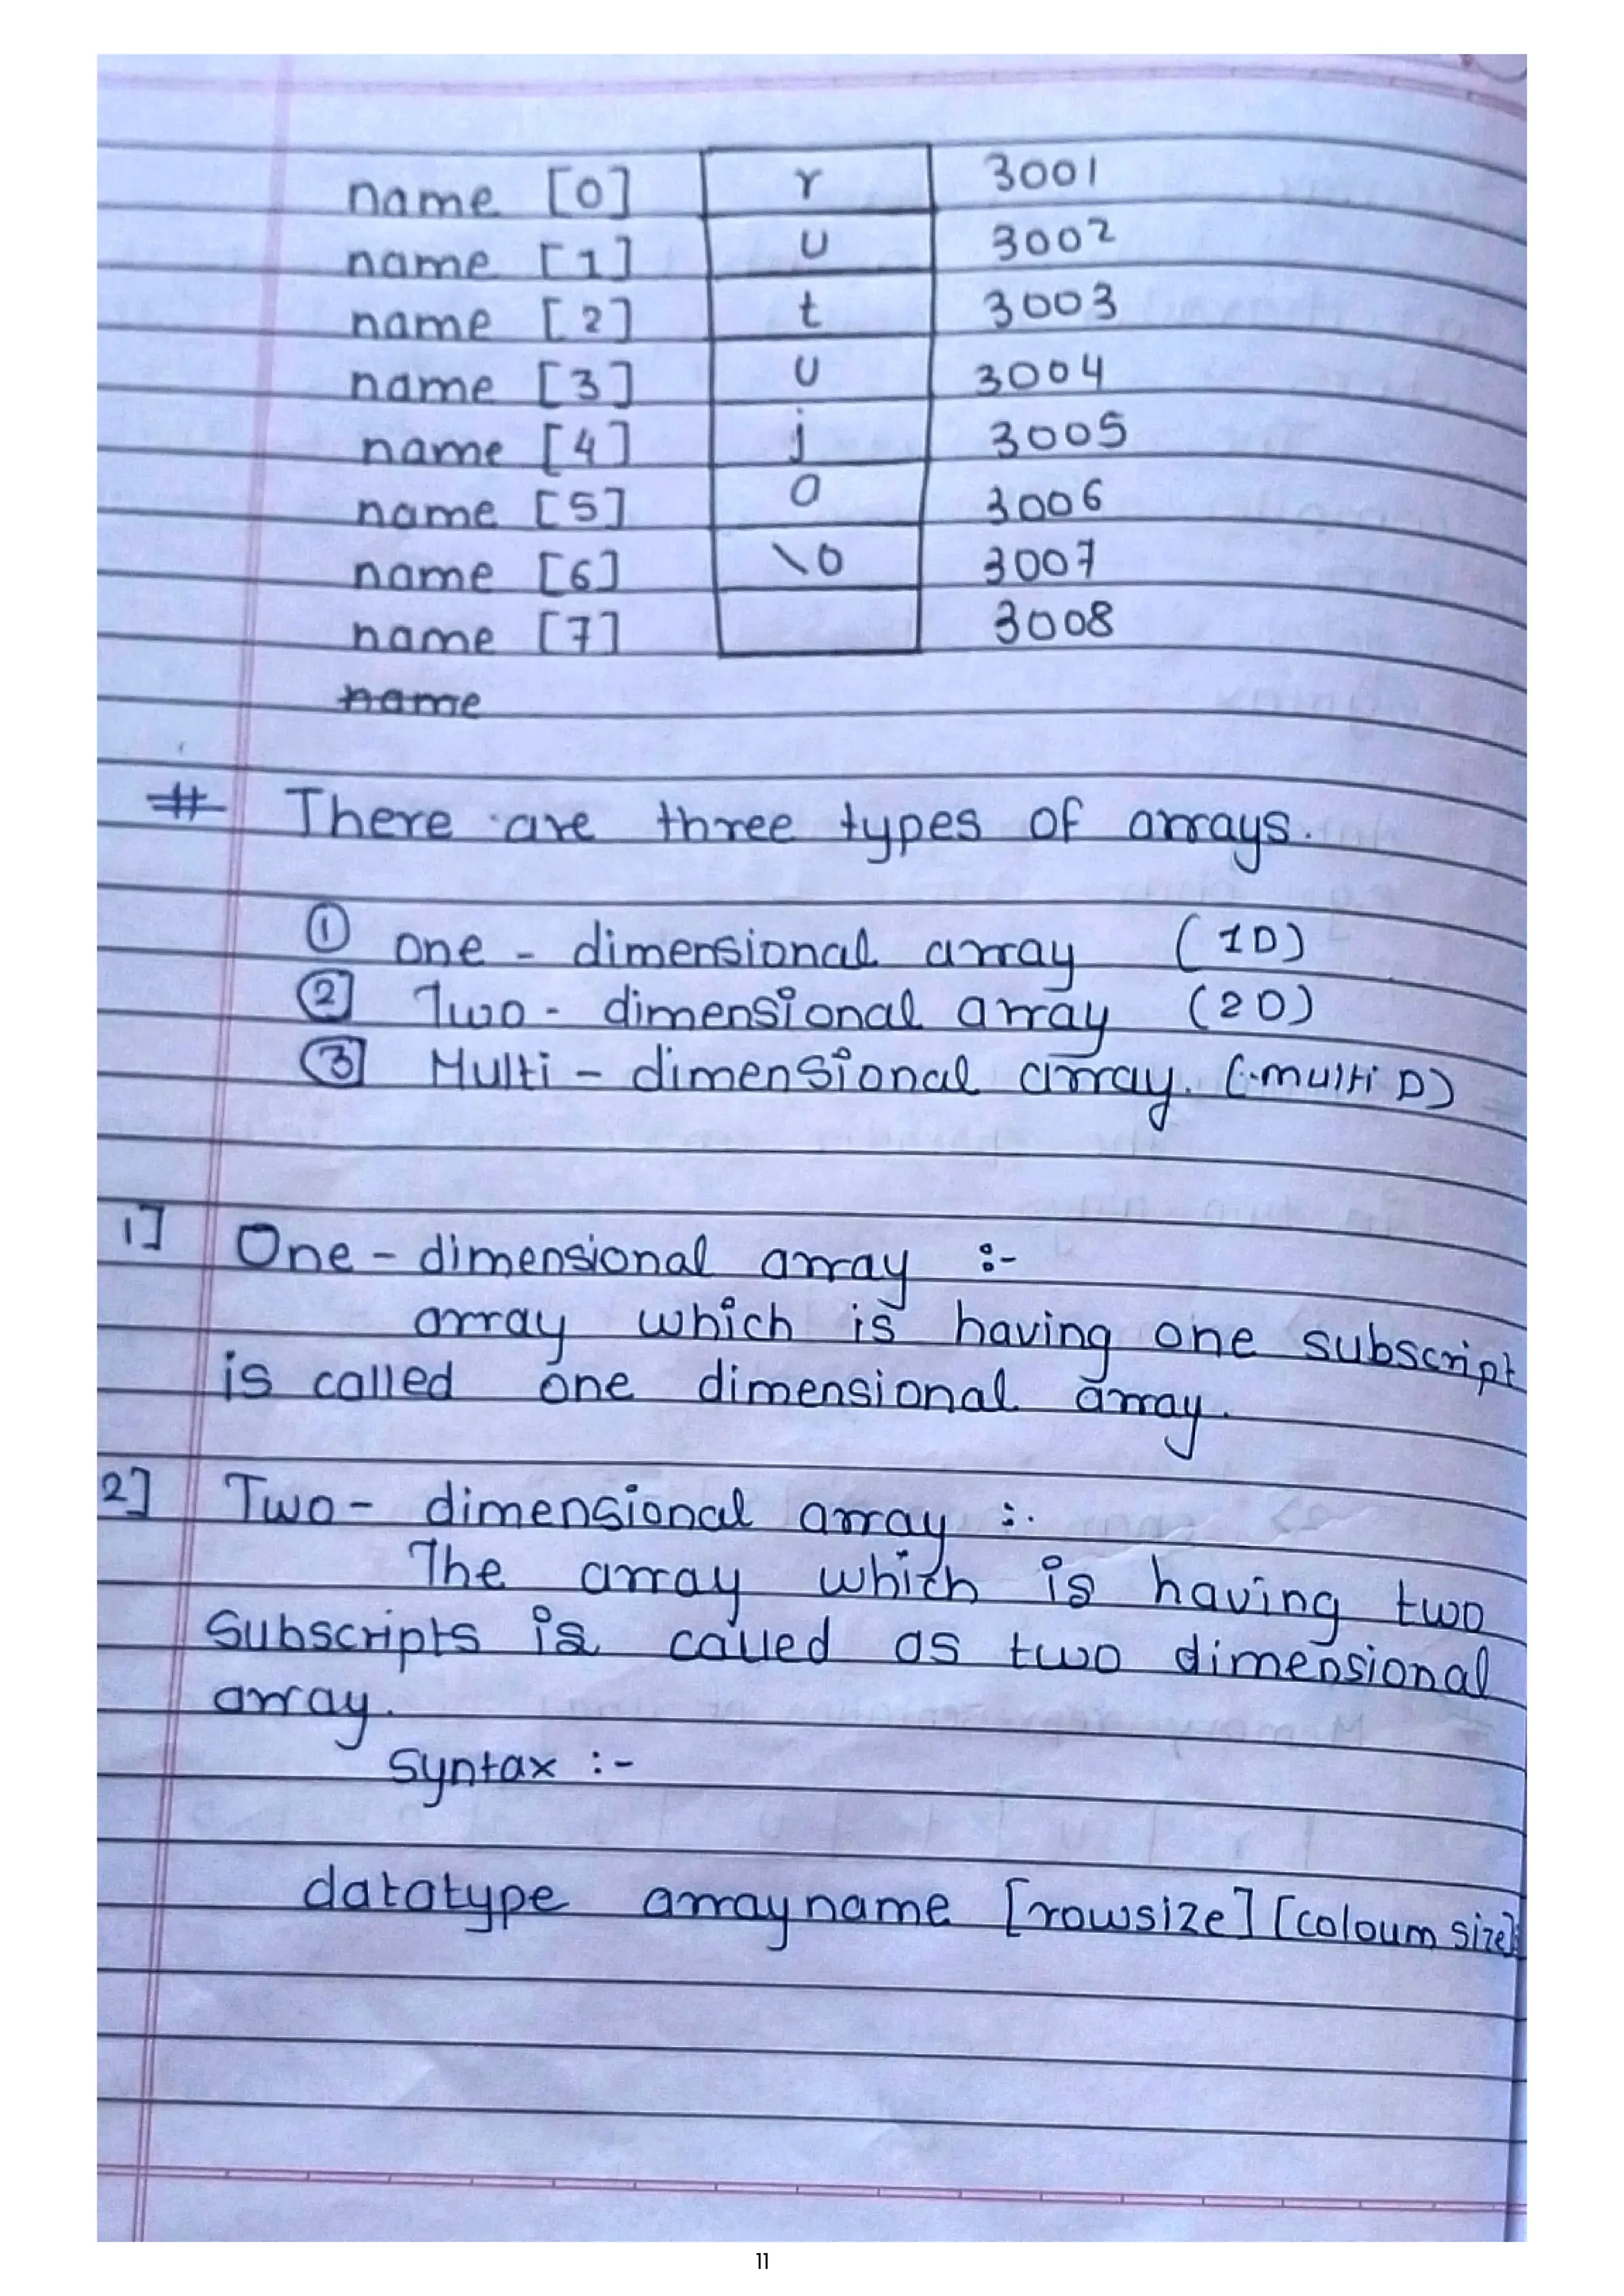 name [0] r 3001
name [1] u 3002
name [2] t 3003
name [3] u 3004
name [4] j 3005
name [5] a 3006
name [6] \0 3007
name [7] 3008
name
# There are three types of arrays.
① one - dimensional array (1D)
② Two - dimensional array (2D)
③ Multi - dimensional array. (multi D)
1] One - dimensional array :-
array which is having one subscript
is called one dimensional array.
2] Two - dimensional array :-
The array which is having two
Subscripts is called as two dimensional
array.
Syntax :-
datatype arrayname [rowsize] [coloum size];
11